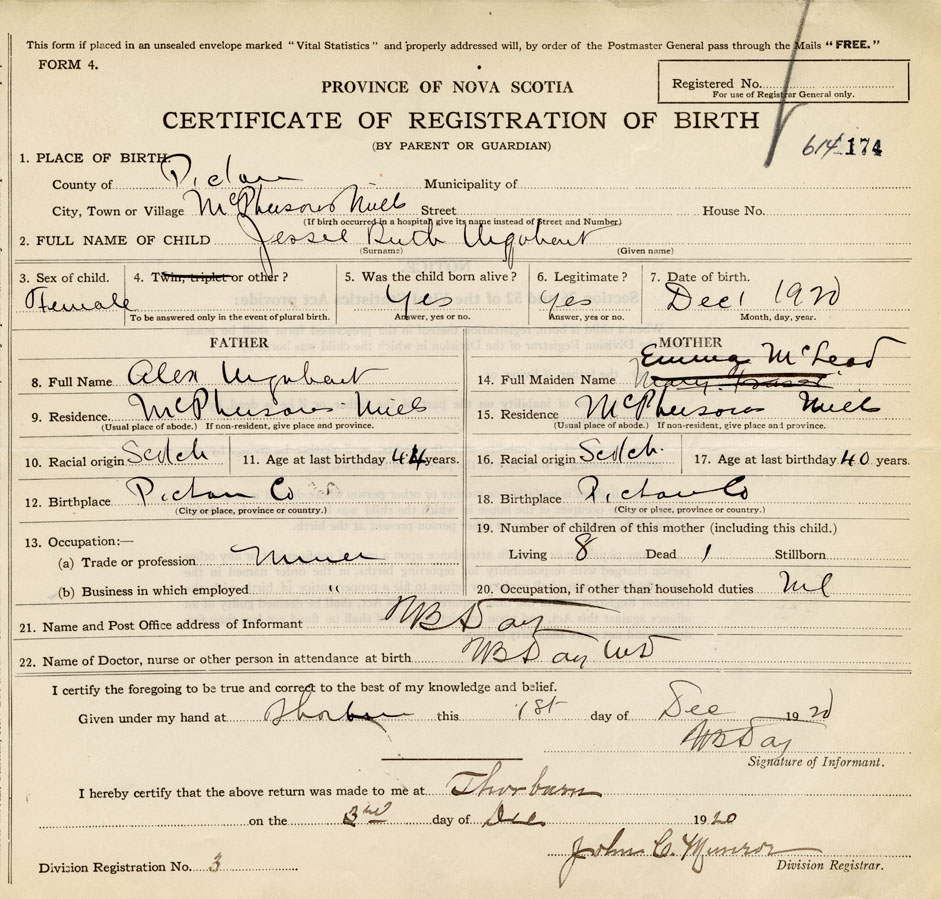 This form if placed in an unsealed envelope marked "Vital Statistics" and properly addressed will, by order of the Postmaster General pass through the Mails "FREE."
FORM 4.
PROVINCE OF NOVA SCOTIA
Registered No.
For use of Registrar General only.
CERTIFICATE OF REGISTRATION OF BIRTH
(BY PARENT OR GUARDIAN)
614 174
1. PLACE OF BIRTH
County of Pictou Municipality of
City, Town or Village McPhersons Mills Street House No.
(If birth occurred in a hospital give its name instead of Street and Number)
2. FULL NAME OF CHILD Jessie Ruth Urquhart
(Surname) (Given name)
3. Sex of child. 4. Twin, triplet or other? 5. Was the child born alive? 6. Legitimate? 7. Date of birth.
Female Yes Yes Dec 1 1920
To be answered only in the event of plural birth. Answer, yes or no. Answer, yes or no. Month, day, year.
FATHER
8. Full Name Alex Urquhart
9. Residence. McPhersons Mills
(Usual place of abode.) If non-resident, give place and province.
10. Racial origin Scotch 11. Age at last birthday 44 years.
12. Birthplace Pictou Co
(City or place, province or country.)
13. Occupation:—
(a) Trade or profession Miner
(b) Business in which employed "
MOTHER
Emma McLeod
14. Full Maiden Name Mary Fraser
15. Residence McPhersons Mills
(Usual place of abode.) If non-resident, give place and province.
16. Racial origin Scotch 17. Age at last birthday 40 years.
18. Birthplace Pictou Co
(City or place, province or country.)
19. Number of children of this mother (including this child.)
Living 8 Dead 1 Stillborn
20. Occupation, if other than household duties
21. Name and Post Office address of Informant WB Day
22. Name of Doctor, nurse or other person in attendance at birth WB Day MD
I certify the foregoing to be true and correct to the best of my knowledge and belief.
Given under my hand at Thorburn this 1st day of Dec 1920
WB Day
Signature of Informant.
I hereby certify that the above return was made to me at Thorburn
on the 3rd day of Dec 1920
John C. Munroe
Division Registration No. 3 Division Registrar.